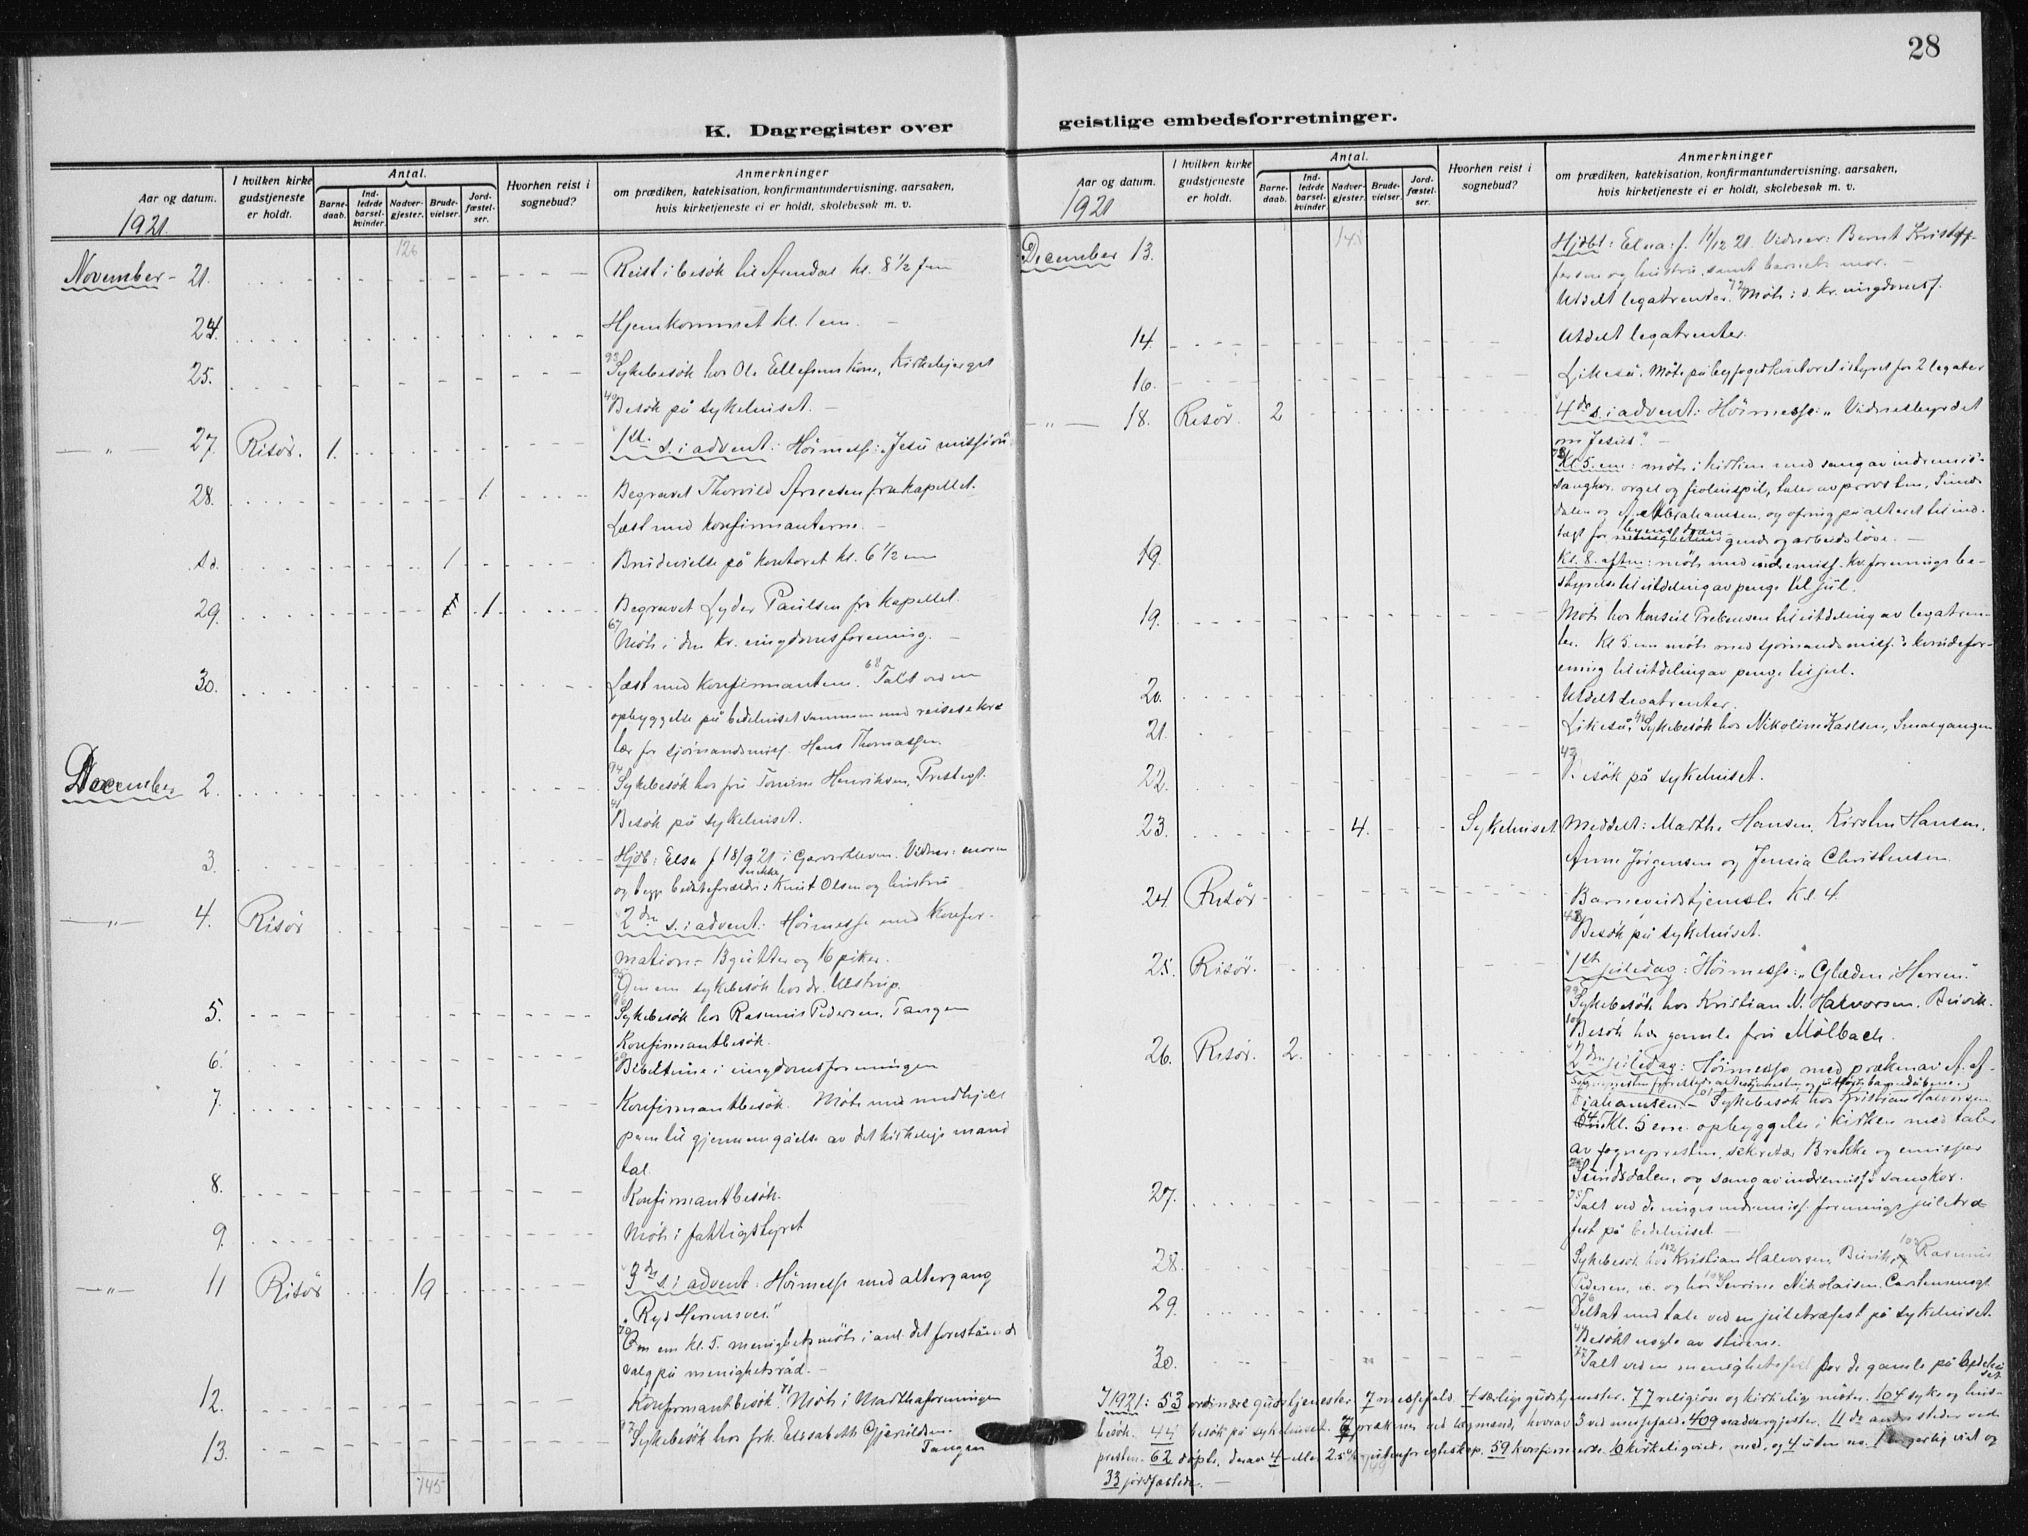 28
K. Dagregister over
Aar og datum.
1921
I hvilken kirke gudstjeneste er holdt.
Antal.
Barne-daab.
Ind-ledede barsel-kvinder.
Nadver-gjester.
Brude-vielser.
Jord-fæstel-ser.
Hvorhen reist i sognebud?
Anmerkninger
om prædiken, katekisation, konfirmantundervisning, aarsaken,
hvis kirketjeneste ei er holdt, skolebesøk m. v.
126
November - 21. Reist i besök til Arendal kl. 8 1/2 fm
24. Hjemkommet kl. 1 em. -
25. 93 Sykebesök hos Ole Ellefsens kone, Kirkebjerget
40 Besök på sykehuset. -
-"- 27. Risör. 1. 1ste s. i advent: Höimesse: Jesu mission
28. 1. Begravet Thorvild fra kapellet.
Læst med konfirmanterne. -
s.d. 1 Brudevielse på kontoret kl. 6 1/2 em
29. 1. Begravet Lyder Paulsen fra kapellet.
67 Möte i den kr. ungdomsforening. -
30. Læst med konfirmantene. 68 Talt ved en
opbyggelse på bedehuset sammen med reisesekre
tær for sjömandsmiss. Hans Thomassen.
December 2. 94 Sykebesök hos fru Tomine Henriksen, Prestegt.
41 Besök på sykehuset.
3. Hjdb: Elsa f 18/9 21 i Vidner: moren
og begge besteforældre: Knut Olsen og hustru
-"- 4. Risör 2den s. i advent: Höimesse med konfir-
mation - 13 gutter og 16 piker.
95 Om em sykebesök hos dr. Ulstrup.
5. 96 Sykebesök hos Rasmus Pedersen, Tangen
Konfirmantbesök.
6. 69 Bibeltime i ungdomsforeningen
7. Konfirmantbesök. Möte med medhjel
pern til gjennemgåelse av det kirkelige mand
tal.
8. Konfirmantbesök.
9. Möte i fattigstyret
-"- 11 Risör 19 3die s. i advent: Höimesse med altergang
"Ryd Herrens vei."
70 Om em kl. 5. menighetsmöte i anl. det foreståend
valg på menighetsråd. -
12. Konfirmantbesök. 71 Möte i Marthaforeningen
13. 97 Sykebesök hos frk. Elisabeth Gjerulden.
Tangen
145
geistlige embedsforretninger.
Aar og datum.
1921
I hvilken kirke gudstjeneste er holdt.
Antal.
Barne-daab.
Ind-ledede barsel-kvinder.
Nadver-gjester.
Brude-vielser.
Jord-fæstel-ser.
Hvorhen reist i sognebud?
Anmerkninger
om prædiken, katekisation, konfirmantundervisning, aarsaken,
hvis kirketjeneste ei er holdt, skolebesøk m. v.
145
December 13. Hjdbt: Elna: f. 11/12 21. Vidner: Bernt Kristof-
fersen og hustru, samt barnets mor. -
Utdelt legatrenter. 72 Möte i d. kr. ungdomsf.
14. Utdelt legatrenter.
16. Likeså. Möte på byfogedkontoret i styret for 2 legater
-"- 18. Risör. 2 4de s. i advent: Höimesse: "Vidnesbyrdet
om Jesus". -
73 Kl 5. em: möte i kirken med sang av indremis-
sangkor. orgel og fiolinspil, taler av provsten, Sunds
dalen og A. Abrahamsen, og ofring på alteret til ind-
tægt for byens træn
gende og arbeidslöse. -
19. Kl. 8. aften: möte med indremisj. kv. forenings be-
styrelse til utdeling av penge til jul.
19. Möte hos konsul Prebensen til utdeling av legatren-
ter. Kl 5. em möte med sjömandsmisj.s kvindefor-
ening til utdeling av penge til jul.
20. Utdelt legatrenter.
21. Likeså. 98 Sykebesök hos Nikoline Karlsen, Smalgangen
22. 42 Besök på sykehuset.
23. 4. Sykehuset. Meddelt: Marthe Hansen, Kirsten Hansen,
Anne Jörgensen og Jensia Christensen.
24. Risör Barnegudstjeneste kl. 4.
43 Besök på sykehuset.
25. Risör. 1ste juledag: Höimesse: "Glæden i Herren."
99 Sykebesök hos Kristian N. Halvorsen, Buvik.
100 Besök hos gamle fru Mölbach.
26. Risör. 2. 2den juledag: Höimesse med præken av A. A-
sognepresten forrettet altertjenesten og
brahamsen. - 101 Sykebesök hos Kristian Halvorsen
74 Kl. 5 em. opbyggelse i kirken med taler
av sognepresten, sekretær Brekke og emissær
Sundsdalen, og sang av indremisj.s sangkor.
27. 75 Talt ved de unges indremisj. forenings juletræ
fest på bedehuset. -
28. Sykebesök hos 102 Kristian Halvorsen, Buvik, 103 Rasmus
Pedersen, og hos 104 Severine Nikolaisen, Carstensensgt.
29. 76 Deltat med tale ved en juletræfest på sykehuset.
44 Besökt nogle av stuene.
30. 77 Talt ved en menighetsfest for de gamle på bedehu
set
I 1921: 53 ordinære gudstjenester. 7 messefald. 4 særlige gudstjenester. 77 religiöse og kirkelige möter. 104 syke og hus-
besök. 44 besök på sykehuset. prækener ved lægmænd, hvorav 3 ved messefald. 409 nadvergjester. 11 andre steder ved
presten. 62 döpte, derav 4 eller utenfor egteskap. 59 konfirmerte. 6 kirkelig vied, med, og 4 uden borgerlig viet og
33 jordfæstede. -